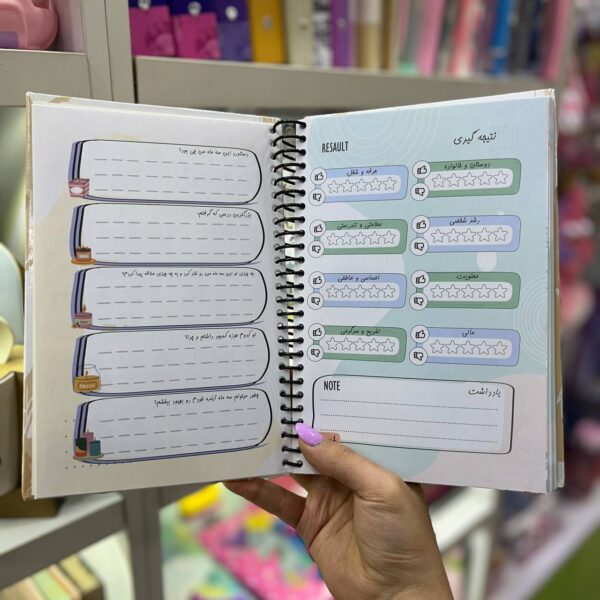 دستاورد این سه ماه من چی بود؟
بزرگترین درسی که گرفتم:
چه چیزی تو این سه ماه من رو
و به چه چیزی علاقه پیدا کردم؟
تو کدوم حوزه کمبود داشتم و چرا؟
چطور میتونم سه ماه آینده خودم رو بهبود ببخشم؟
RESAULT
نتیجه گیری
دوستان و خانواده
حرفه و شغل
رشد شخصی
سلامتی و تندرستی
معنویت
احساسی و عاطفی
مالی
تفریح و سرگرمی
NOTE
یادداشت